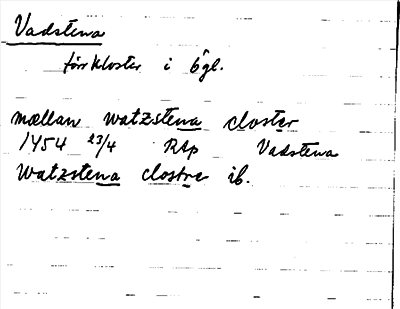 Vadstena
förr kloster i Ögl.
mællan watzstena closter
1454 23/4 RAp Vadstena
Watzstena clostre ib.